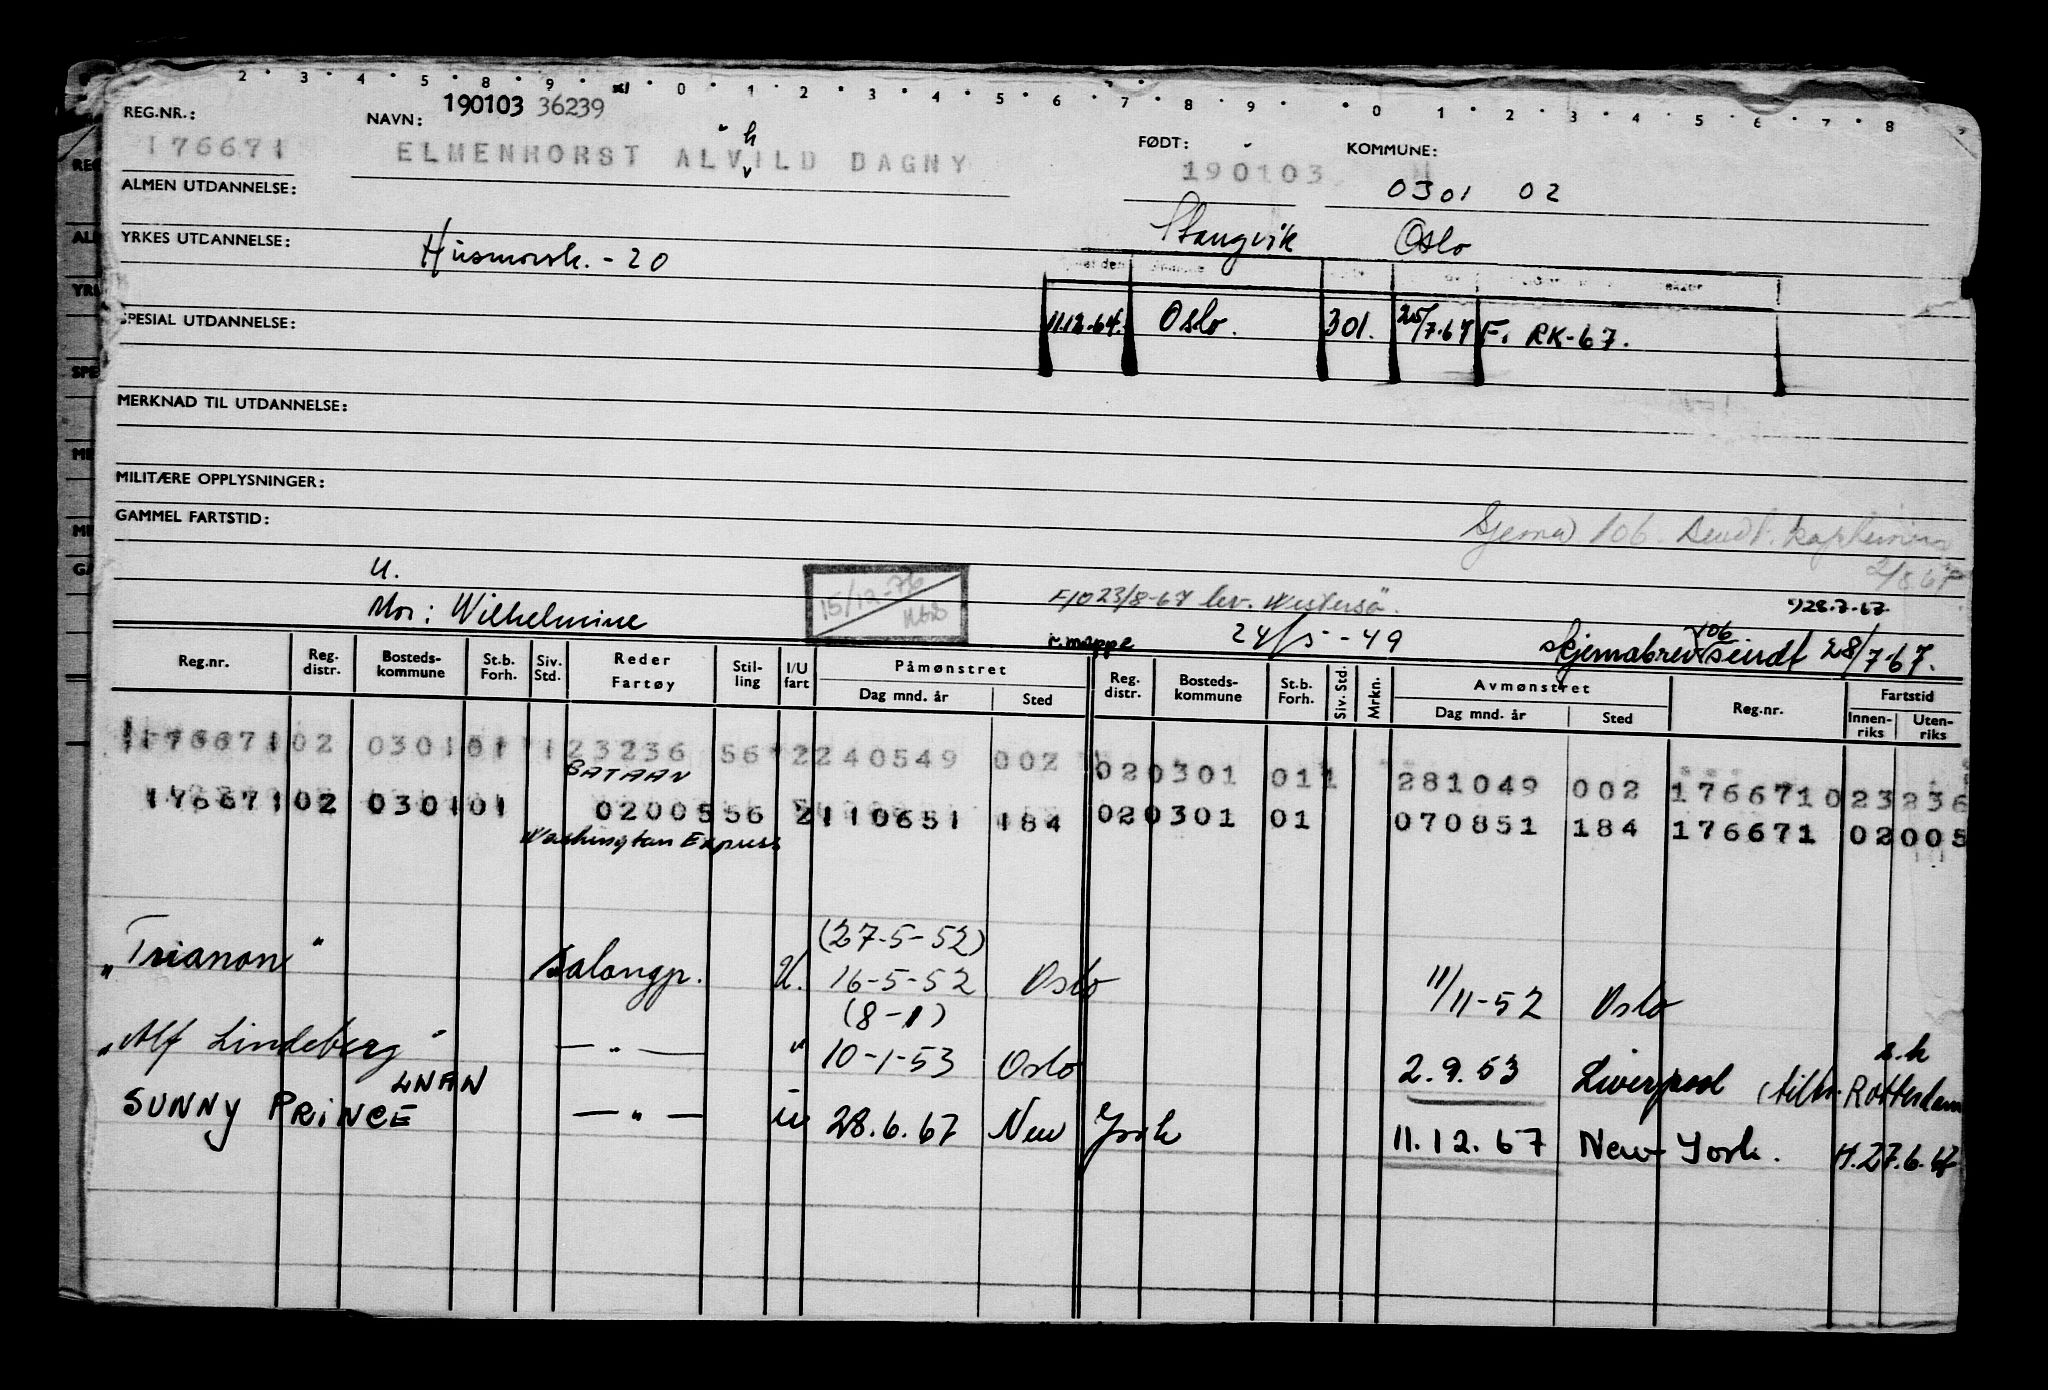 2 · 3 · 4 · 5 · 8 · 9 · 0 · 1 · 2 · 3 · 4 · 5 · 6 · 7 · 8 · 9 · · 0 1 2 3 4 5 6 7 8
190103 36239
REG.NR.: NAVN: FØDT: KOMMUNE:
176671 ELMENHORST ALVILD DAGNY 190103
h
0301 02
ALMEN UTDANNELSE:
Stangvik Oslo
YRKES UTDANNELSE: Husmorsk. - 20
SPESIAL UTDANNELSE: 11.12.64. Oslo. 301. 25/7.67 F. RK-67.
MERKNAD TIL UTDANNELSE:
MILITÆRE OPPLYSNINGER:
GAMMEL FARTSTID:
Skjema 106. sendt. kapteinen
2/8 67.
U.
15/12-76
F/O 23/8-67 lev. 28.7.67
Mor: Wilhelmine
24/5-49
i. mappe
106
Skjemabrev sendt 28/7-67.
Reg.nr. Reg. distr. Bosteds- kommune St.b. Forh. Siv. Std. Reder Fartøy Stil- ling I/U fart Påmønstret Dag mnd. år Sted Reg. distr. Bosteds- kommune St.b. Forh. Siv. Std. Mrkn. Avmønstret Dag mnd. år Sted Reg.nr. Fartstid Innen- riks Uten- riks
176671 02 0301 01 1 23236 56 2 240549 002 02 0301 01 1 281049 002 176671 0 23236
BATAAN
176671 02 0301 01 02005 56 2 110651 184 02 0301 01 070851 184 176671 02005
Washington Express
(27-5-52)
"Trianon" Salongp. U. 16-5-52 Oslo 11/11-52 Oslo
(8-1)
"Alf Lindeberg" — " — " 10-1-53 Oslo 2.9.53 Liverpool (tiltr. Rotterdam
s.k
LNAN
SUNNY PRINCE — " — u 28.6.67 New York 11.12.67 New York. H.27.6.67